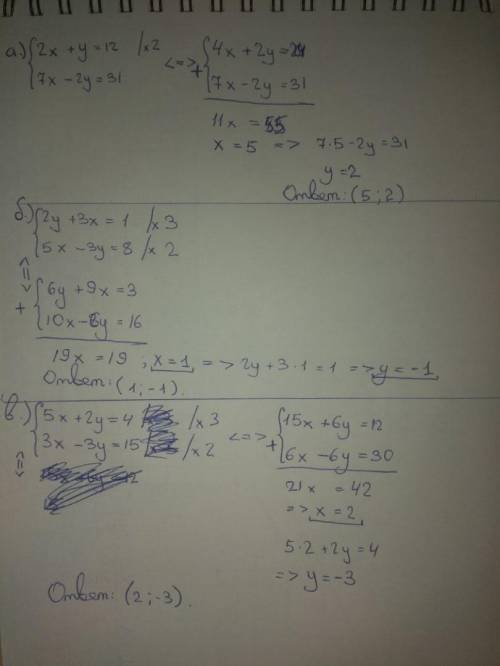 а.) {2x + y = 12 /x2
{7x - 2y = 31
<=> + {4x + 2y = 24
{7x - 2y = 31
11x = 55
x = 5 => 7·5 - 2y = 31
y = 2
Ответ: (5; 2)
б.) {2y + 3x = 1 /x 3
{5x - 3y = 8 /x 2
<=>
+ {6y + 9x = 3
{10x - 6y = 16
19x = 19 ; x = 1 => 2y + 3·1 = 1 => y = -1
Ответ: (1; -1).
в.) {5x + 2y = 4 /x 3
{3x - 3y = 15 /x 2
<=>
<=> + {15x + 6y = 12
{6x - 6y = 30
21x = 42
=> x = 2
5·2 + 2y = 4
=> y = -3
Ответ: (2; -3).